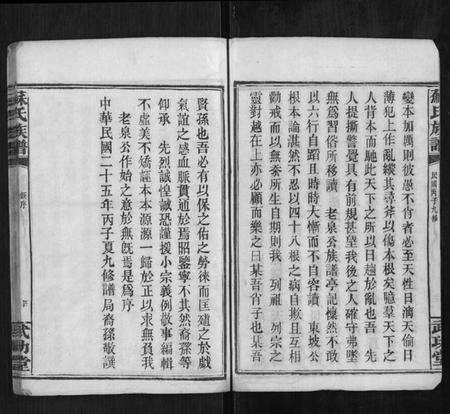 蘇氏族譜
民國丙子九修
武功堂
變本加厲則彼愚不肖者必至天性日漓天倫日
薄犯上作亂縱其尋斧以傷本根矣噫羣天下之
人背本而馳此天下之所以日趨於亂也吾 先
人提撕警覺具有前規甚望我後之人確守弗墜
無爲習俗所移讀 老泉公族譜亭記懍然不敢
以六行自蹈且時時大慚而不自容讀 東坡公
根本論湛然不忍以四十八根之病自欺且互相
勸戒而以無忝所生自期則我 列祖 列宗之
靈對越在上亦必顧而樂之曰某吾肖子也某吾
賢孫也吾必有以保之佑之勞徠而匡翼之於戲
氣誼之感血脈貫通於焉昭鑒寧不其然裔孫等
仰承 先烈誠惶誠恐謹援小宗義例敬事編輯
不虛美不矯誣本本源源一歸於正以求無負我
老泉公作始之意於無旣焉是爲序
中華民國二十五年丙子夏九修譜局裔孫敬譔
蘇氏族譜
新序
武功堂